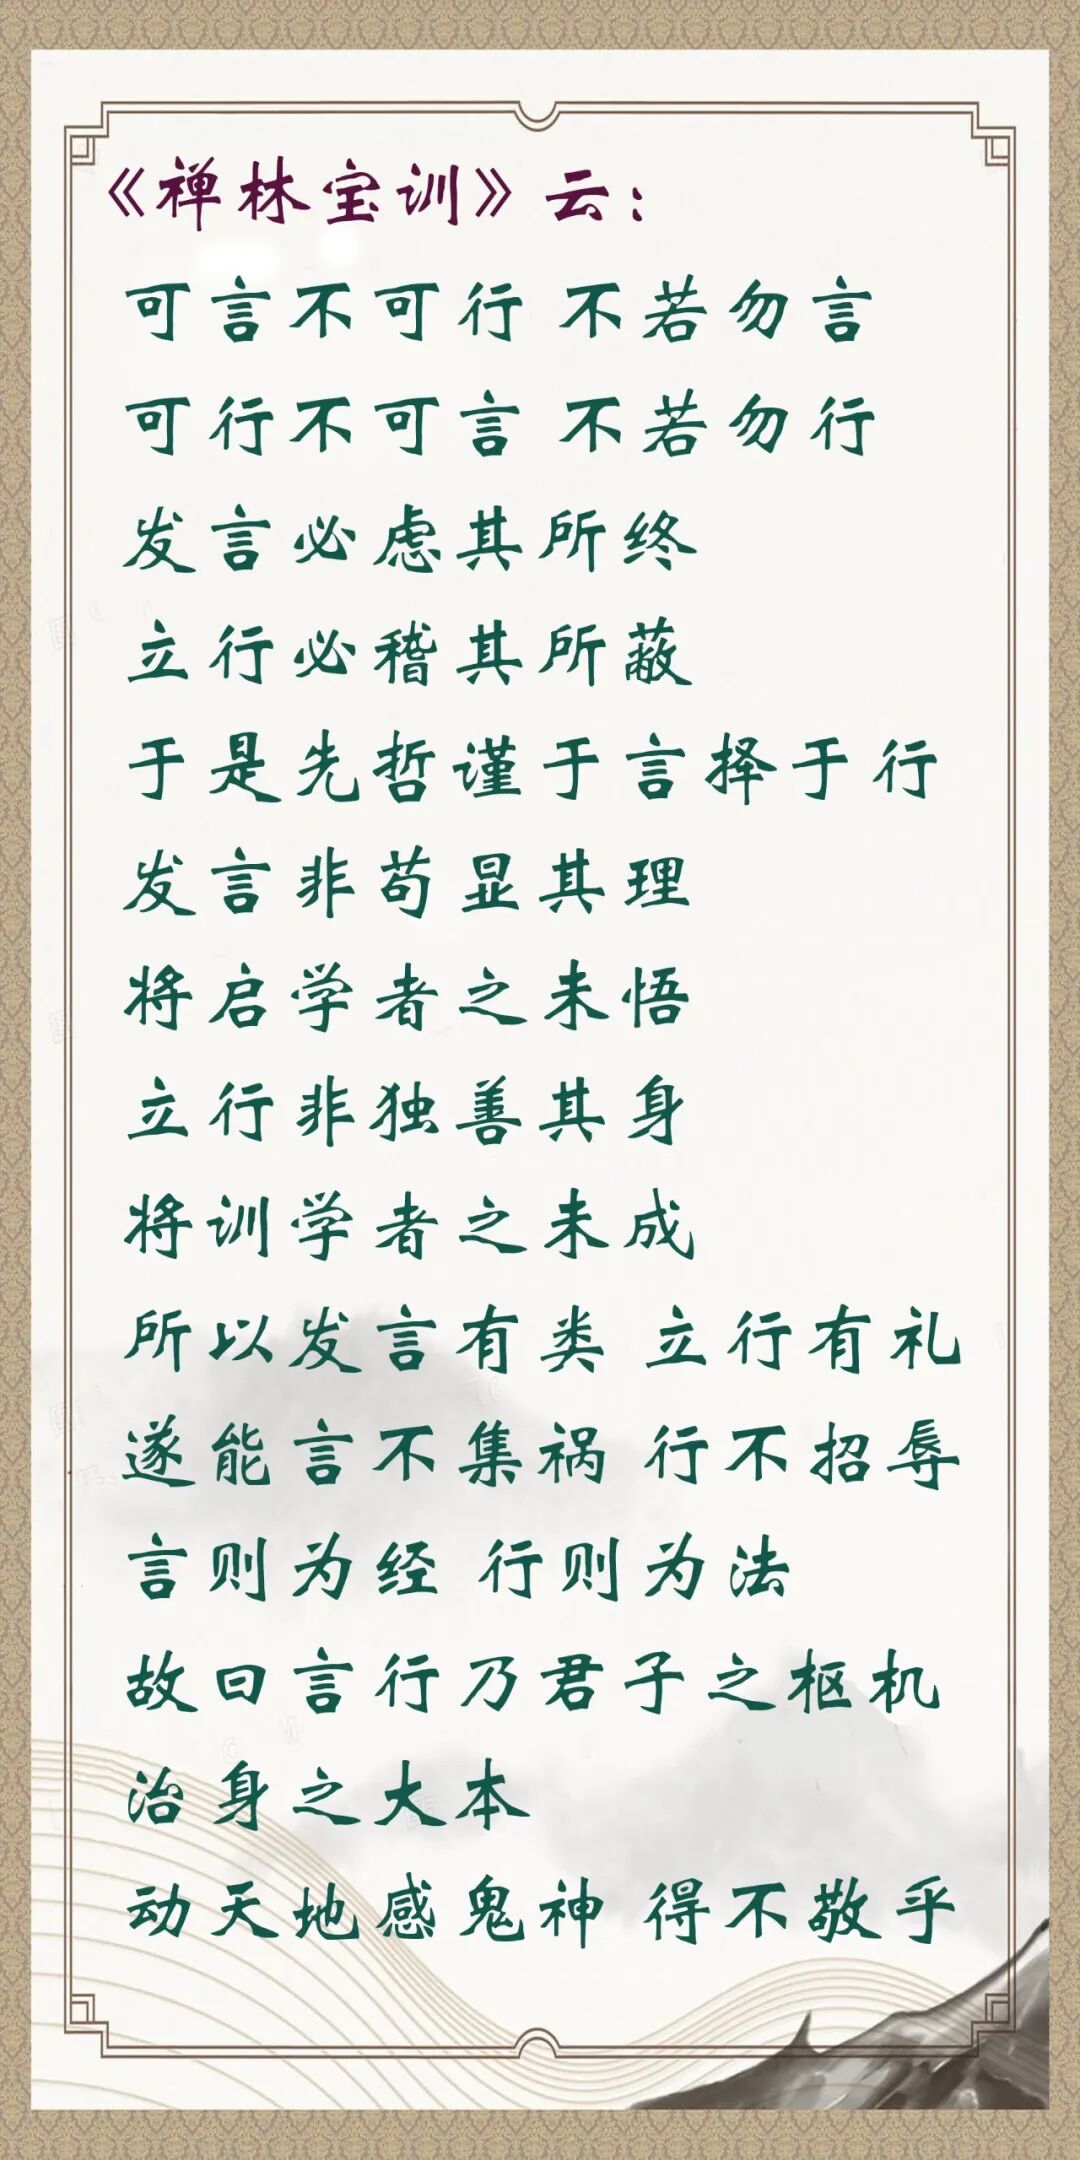 《禅林宝训》云：
可言不可行 不若勿言
可行不可言 不若勿行
发言必虑其所终
立行必稽其所蔽
于是先哲谨于言择于行
发言非苟显其理
将启学者之未悟
立行非独善其身
将训学者之未成
所以发言有类 立行有礼
遂能言不集祸 行不招辱
言则为经 行则为法
故曰言行乃君子之枢机
治身之大本
动天地感鬼神 得不敬乎